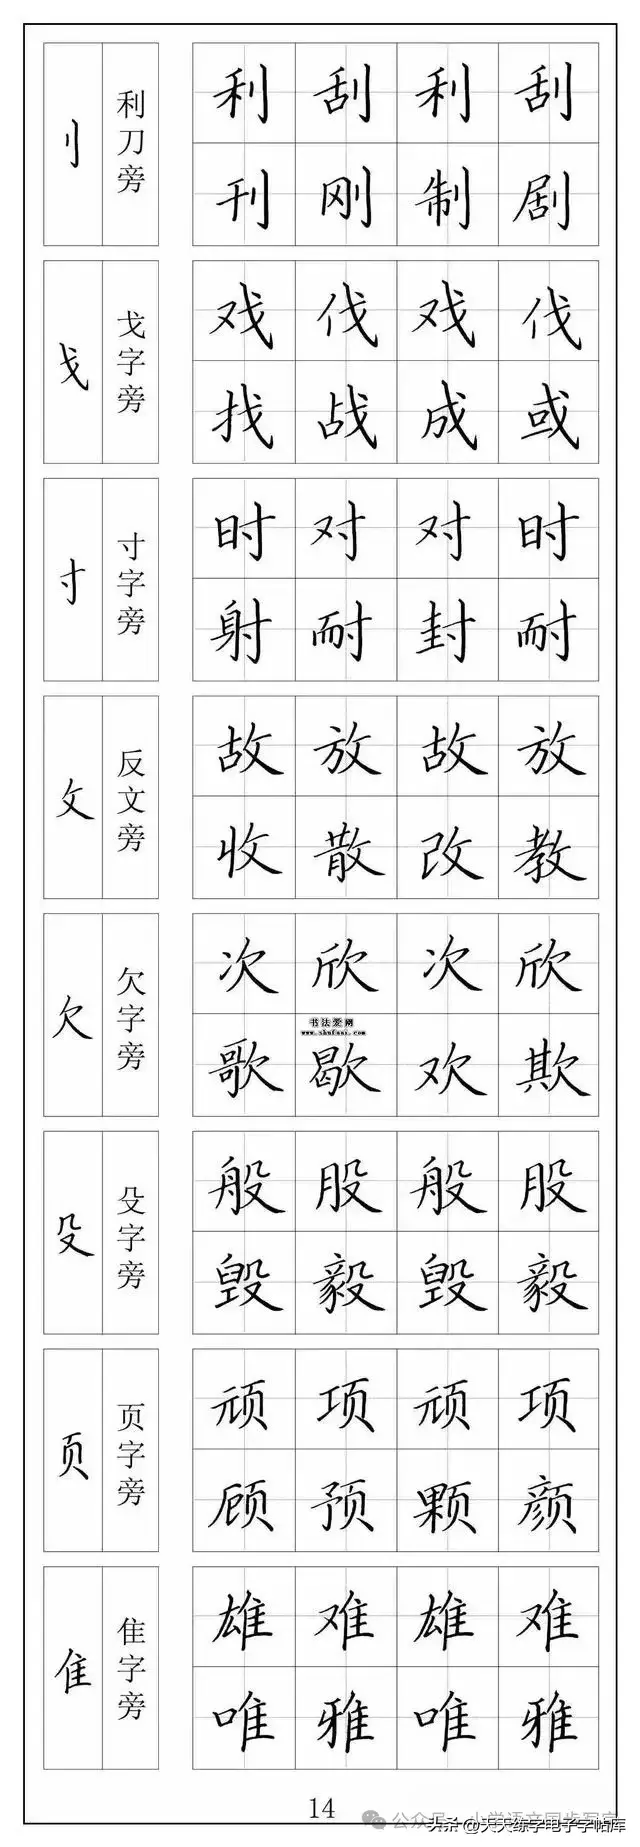 刂 利刀旁 利 刮 利 刮
刊 刚 制 剧
戈 戈字旁 戏 伐 戏 伐
找 战 成 或
寸 寸字旁 时 对 对 时
射 耐 封 耐
攵 反文旁 故 放 故 放
收 散 改 教
欠 欠字旁 次 欣 次 欣
书法爱网
www.shufans.com
歌 歇 欢 欺
殳 殳字旁 般 股 般 股
毁 毅 毁 毅
页 页字旁 顽 项 顽 项
顾 预 颗 颜
隹 隹字旁 雄 难 雄 难
唯 雅 唯 雅
14
公众号·小学语文同步写字
头条@天天练字电子字帖库